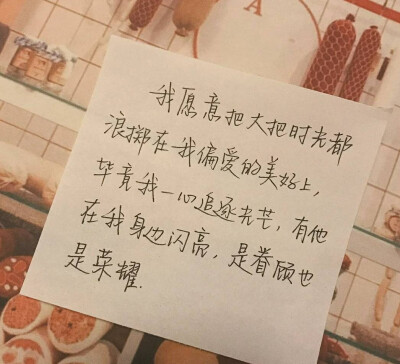 A
我愿意把大把时光都
浪掷在我偏爱的美好上,
毕竟我一心追逐光芒,有他
在我身边闪亮,是眷顾也
是荣耀.